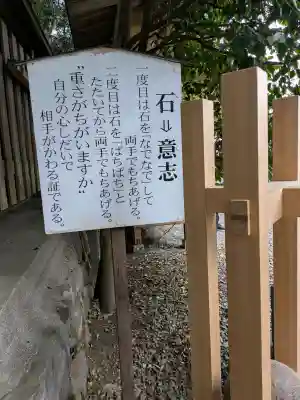 石⇒意志
一度目は石を「なでなで」して
両手でもちあげる。
二度目は石を「ぱちぱち」と
たたいてから両手でもちあげる。
“重さがちがいますか”
自分の心しだいで
相手がかわる証である。